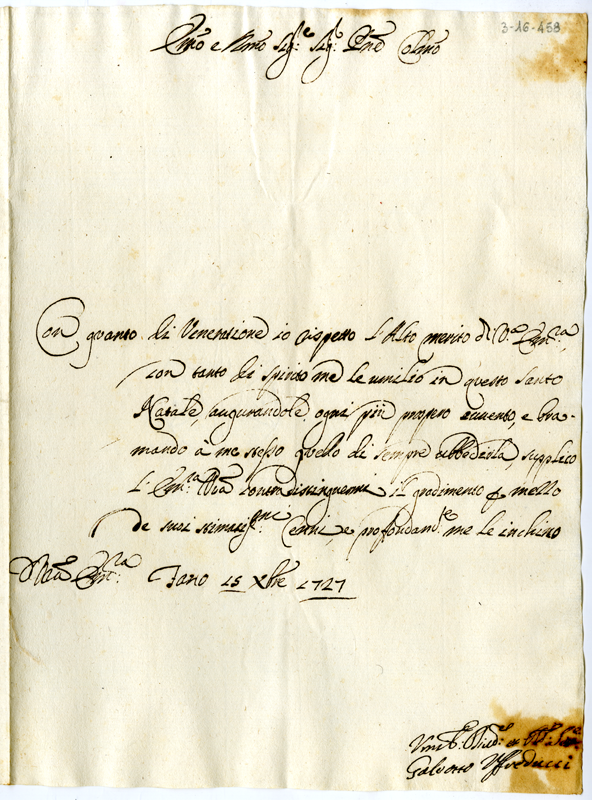 3-16-458
Emo e Rmo Sig.e Sig.e Pne Colmo
Con quanto di Venerazione io rispetto l'Alto merito di V.a Em.za,
con tanto di spirito me le umilio in questo Santo
Natale, augurandole ogni più prospero evvento, e bra-
mando à me stesso quello di sempre ubbedirla, supplico
l'Em.za Vra contradistinguermi il gradimento
de suoi stimatis.mi Cenni, e profondam.te me le inchino
Di Vra Em.za Fano 15 Xbre 1727
Galeotto Uffreducci